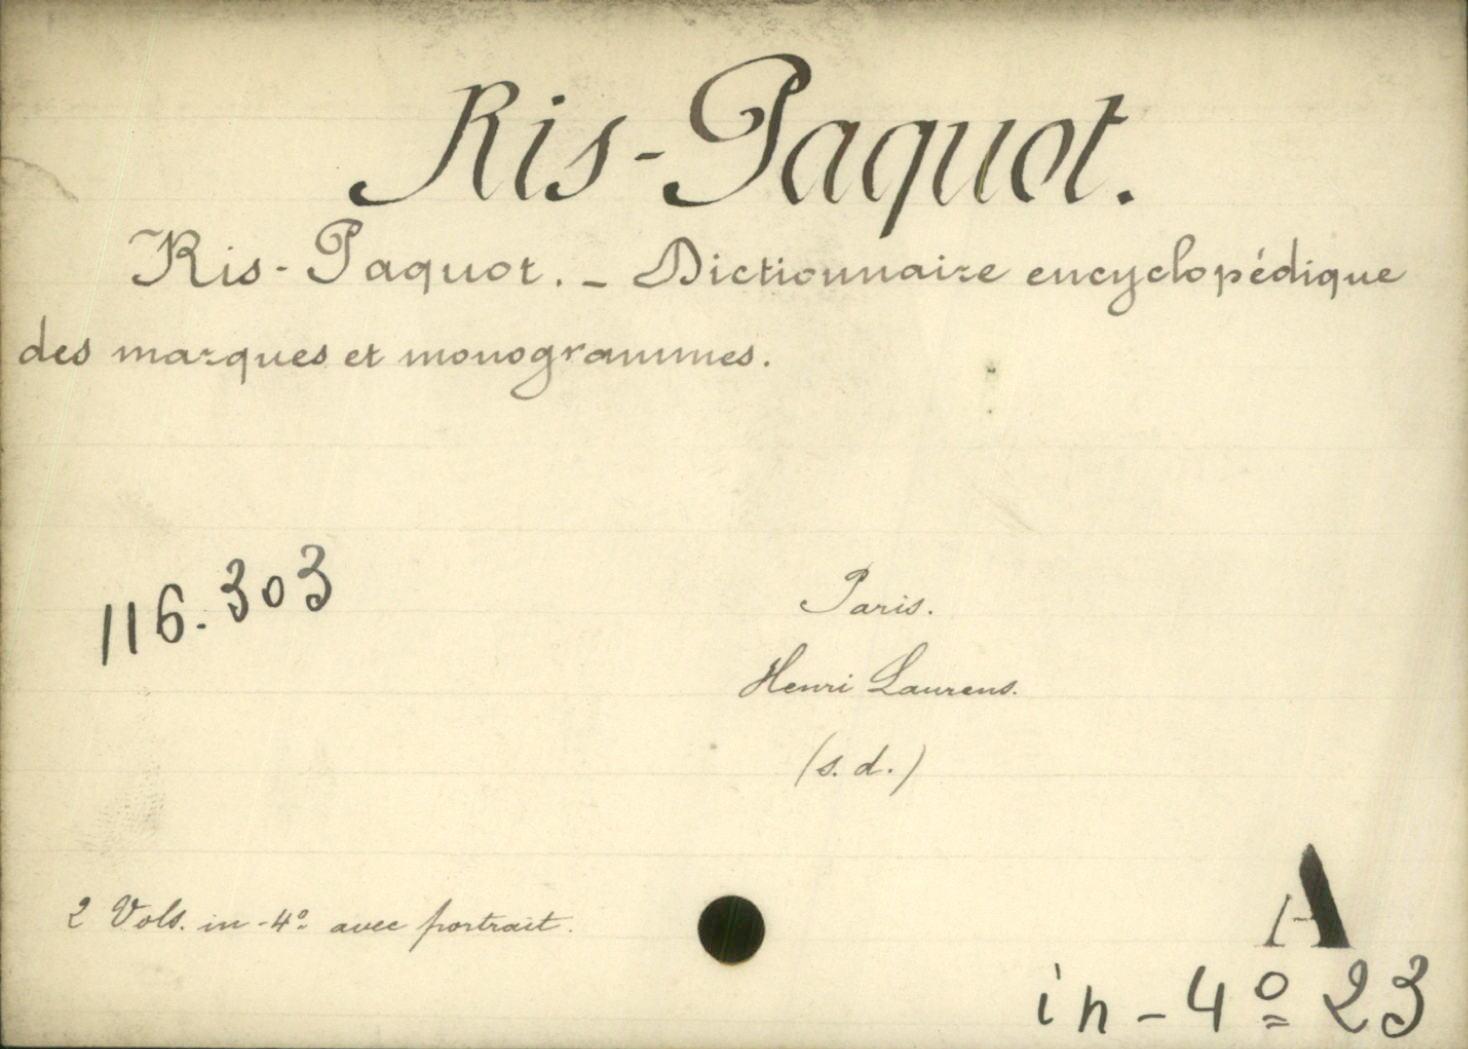 Ris-Paquot.
Ris-Paquot. - Dictionnaire encyclopédique
des marques et monogrammes.
116.303
Paris.
Henri Laurens.
(s. d.)
2 Vols. in-4º avec portrait.
A
in-4º 23